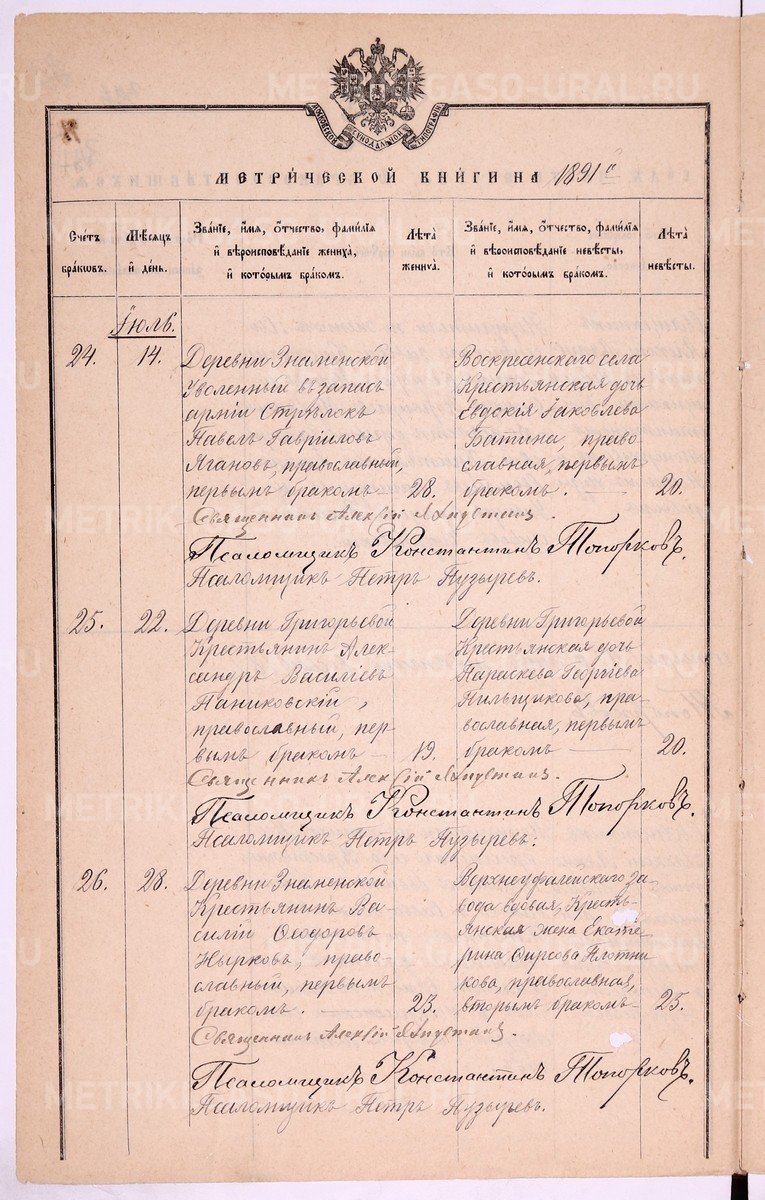 МЕТРИЧЕСКОЙ КНИГИ НА 1891й
Счетъ браковъ.
Мѣсяцъ и день.
Званіе, имя, отчество, фамилія и вѣроисповѣданіе жениха, и которымъ бракомъ.
Лѣта жениха.
Званіе, имя, отчество, фамилія и вѣроисповѣданіе невѣсты, и которымъ бракомъ.
Лѣта невѣсты.
Іюль.
24.
14.
Деревни Знаменской
Уволенный въ запасъ
арміи Стрѣлокъ
Павелъ Гавріиловъ
Ягановъ, православный,
первымъ бракомъ
28.
Воскресенскаго села
Крестьянская дочь
Евдокія Іаковлева
Батина, право-
славная, первымъ
бракомъ.
20.
Священникъ Алексій
Псаломщикъ Константинъ Топорковъ.
Псаломщикъ Петръ Пузыревъ.
25.
22.
Деревни Григорьевой
Крестьянинъ Алек-
сандръ Василіевъ
Паниковскій,
православный, пер-
вымъ бракомъ
19.
Деревни Григорьевой
Крестьянская дочь
Параскева Георгіева
Пильщикова, пра-
вославная, первымъ
бракомъ
20.
Священникъ Алексій
Псаломщикъ Константинъ Топорковъ.
Псаломщикъ Петръ Пузыревъ.
26.
28.
Деревни Знаменской
Крестьянинъ Ва-
силій Ѳеодоровъ
Нырковъ, право-
славный, первымъ
бракомъ.
23.
Верхнеуфалейскаго за-
вода вдовая, Кресть-
янская жена Екате-
рина Ѳирсова Плотни-
кова, православная,
вторымъ бракомъ
25.
Священникъ Алексій
Псаломщикъ Константинъ Топорковъ.
Псаломщикъ Петръ Пузыревъ.